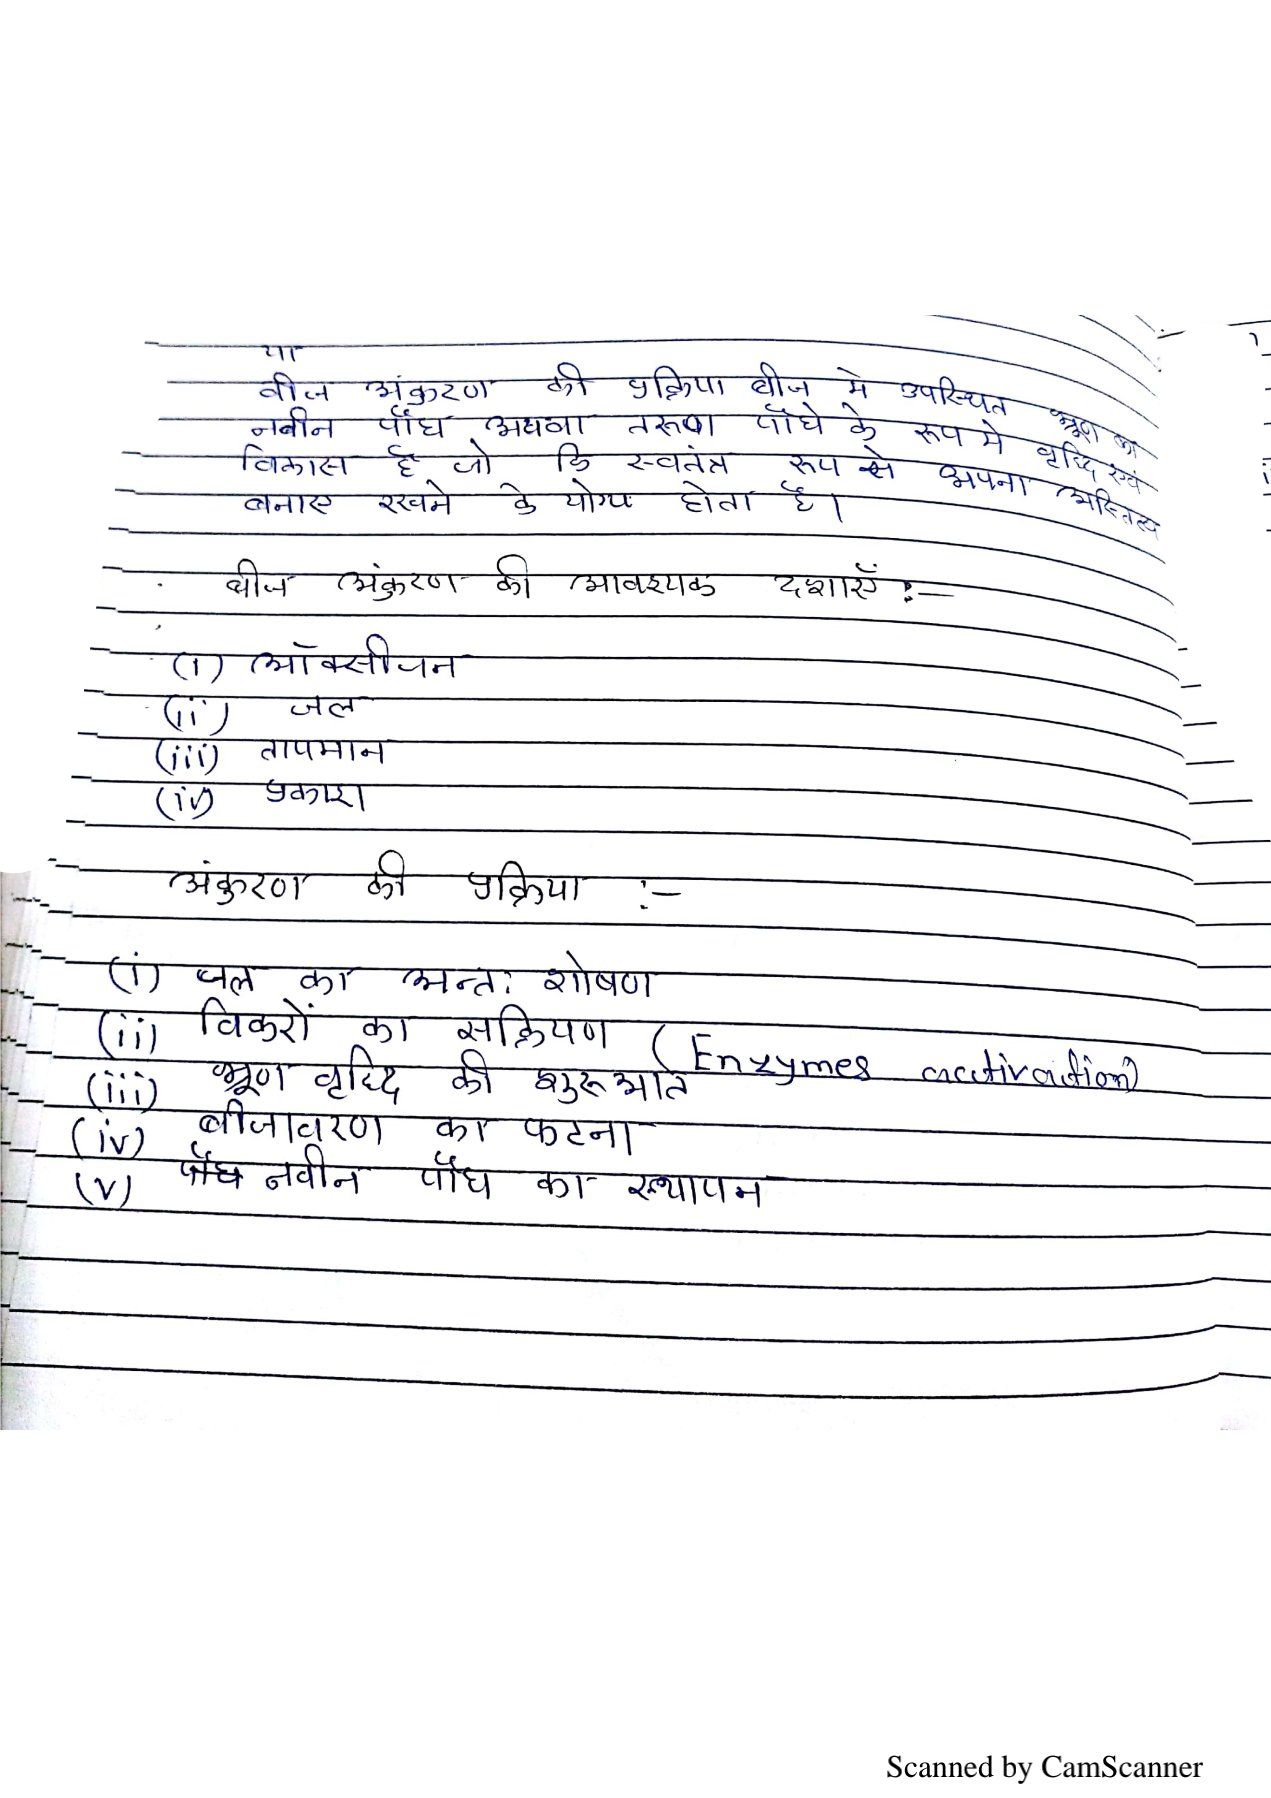 या
बीज अंकुरण की प्रक्रिया बीज मे उपस्थित भ्रूण का
नवीन पौध अथवा तरूण पौधे के रूप मे वृध्दि एवं
विकास है जो कि स्वतंत्र रूप से अपना अस्तित्व
बनाए रखने के योग्य होता है।
बीज अंकुरण की आवश्यक दशाएँ :-
(i) ऑक्सीजन
(ii) जल
(iii) तापमान
(iv) प्रकाश
अंकुरण की प्रक्रिया :-
(i) जल का अन्त: शोषण
(ii) विकरों का सक्रियण (Enzymes activation)
(iii) भ्रूण वृध्दि की शुरूआत
(iv) बीजावरण का फटना
(v) नवीन पौध का स्थापन
Scanned by CamScanner